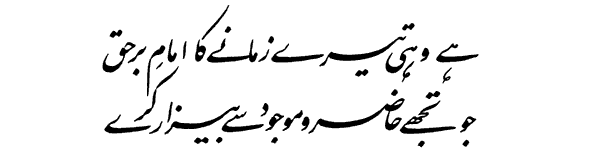 ہے وہی تیرے زمانے کا امامِ برحق
جو تجھے حاضر و موجود سے بیزار کرے